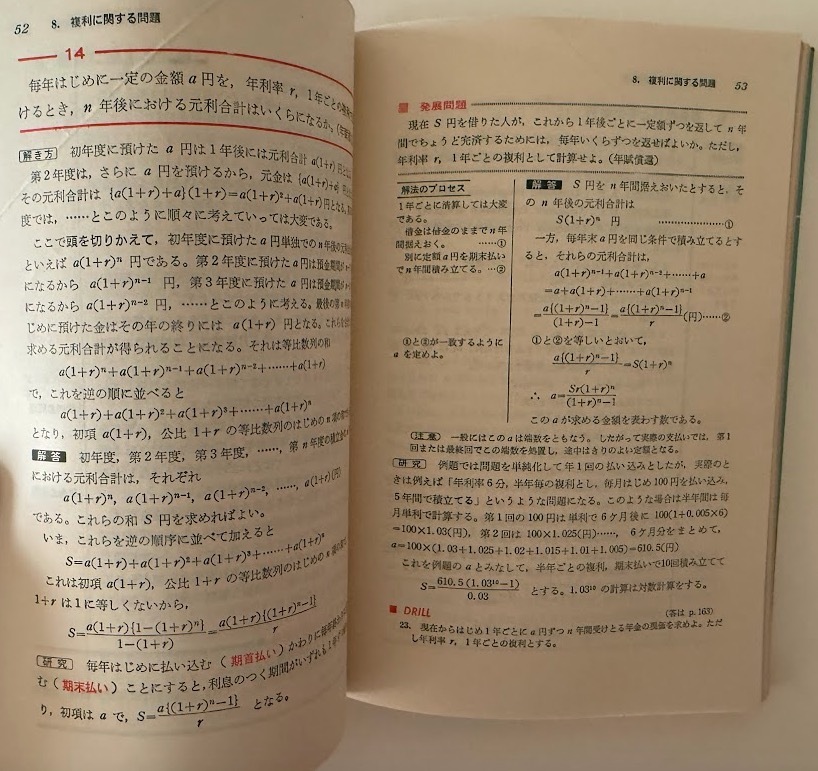 52 8. 複利に関する問題
14
毎年はじめに一定の金額 a 円を, 年利率 r, 1年ごとの
けるとき, n 年後における元利合計はいくらになるか.
解き方 初年度に預けた a 円は1年後には元利合計 a(1+r) 円と
第2年度は, さらに a 円を預けるから, 元金は {a(1+r)+a} 円
その元利合計は {a(1+r)+a}(1+r)=a(1+r)²+a(1+r) 円となる.
度では, ……とこのように順々に考えていっては大変である.
ここで頭を切りかえて, 初年度に預けた a 円単独での n 年後の元
といえば a(1+r)ⁿ 円である. 第2年度に預けた a 円は預金期間が
になるから a(1+r)ⁿ⁻¹ 円, 第3年度に預けた a 円は預金期間が
になるから a(1+r)ⁿ⁻² 円, ……とこのように考える. 最後の
じめに預けた金はその年の終りには a(1+r) 円となる. これらを
求める元利合計が得られることになる. それは等比数列の和
a(1+r)ⁿ+a(1+r)ⁿ⁻¹+a(1+r)ⁿ⁻²+……+a(1+r)
で, これを逆の順に並べると
a(1+r)+a(1+r)²+a(1+r)³+……+a(1+r)ⁿ
となり, 初項 a(1+r), 公比 1+r の等比数列のはじめの n 項の
解答 初年度, 第2年度, 第3年度, ……, 第 n 年度の積立金の
における元利合計は, それぞれ
a(1+r)ⁿ, a(1+r)ⁿ⁻¹, a(1+r)ⁿ⁻², ……, a(1+r)(円)
である. これらの和 S 円を求めればよい.
いま, これらを逆の順序に並べて加えると
S=a(1+r)+a(1+r)²+a(1+r)³+……+a(1+r)ⁿ
これは初項 a(1+r), 公比 1+r の等比数列のはじめの n 項の
1+r は1に等しくないから,
S=a(1+r){1-(1+r)ⁿ}/1-(1+r)=a(1+r){(1+r)ⁿ-1}/r
研究 毎年はじめに払い込む (期首払い) かわりに毎年
む (期末払い) ことにすると, 利息のつく期間がいずれも1年
り, 初項は a で, S=a{(1+r)ⁿ-1}/r となる.
8. 複利に関する問題 53
発展問題
現在 S 円を借りた人が, これから1年後ごとに一定額ずつを返して n 年
間でちょうど完済するためには, 毎年いくらずつを返せばよいか. ただし,
年利率 r, 1年ごとの複利として計算せよ. (年賦償還)
解法のプロセス
1年ごとに清算しては大変
である.
借金は借金のままで n 年
間据えおく. ……①
別に定額 a 円を期末払い
で n 年間積み立てる. …②
①と②が一致するように
a を定めよ.
解答 S 円を n 年間据えおいたとすると, そ
の n 年後の元利合計は
S(1+r)ⁿ 円 ……………………①
一方, 毎年末 a 円を同じ条件で積み立てるとす
ると, それらの元利合計は,
a(1+r)ⁿ⁻¹+a(1+r)ⁿ⁻²+……+a
=a+a(1+r)+……+a(1+r)ⁿ⁻¹
=a{(1+r)ⁿ-1}/(1+r)-1=a{(1+r)ⁿ-1}/r(円)……②
①と②を等しいとおいて,
a{(1+r)ⁿ-1}/r=S(1+r)ⁿ
∴ a=Sr(1+r)ⁿ/(1+r)ⁿ-1
この a が求める金額を表わす数である.
(注意) 一般にはこの a は端数をともなう. したがって実際の支払いでは, 第1
回または最終回でこの端数を処置し, 途中はきりのよい定額となる.
研究 例題では問題を単純化して年1回の払い込みとしたが, 実際のと
きは例えば「年利率6分, 半年毎の複利とし, 毎月はじめ100円を払い込み,
5年間で積立てる」というような問題になる. このような場合は半年間は毎
月単利で計算する. 第1回の100円は単利で6ケ月後に 100(1+0.005×6)
=100×1.03(円), 第2回は 100×1.025(円)……, 6ケ月分をまとめて,
a=100×(1.03+1.025+1.02+1.015+1.01+1.005)=610.5(円)
これを例題の a とみなして, 半年ごとの複利, 期末払いで10回積み立てて
S=610.5(1.03¹⁰-1)/0.03 とする. 1.03¹⁰ の計算は対数計算をする.
DRILL (答は p.163)
23. 現在からはじめ1年ごとに a 円ずつ n 年間受けとる年金の現価を求めよ. ただ
し年利率 r, 1年ごとの複利とする.